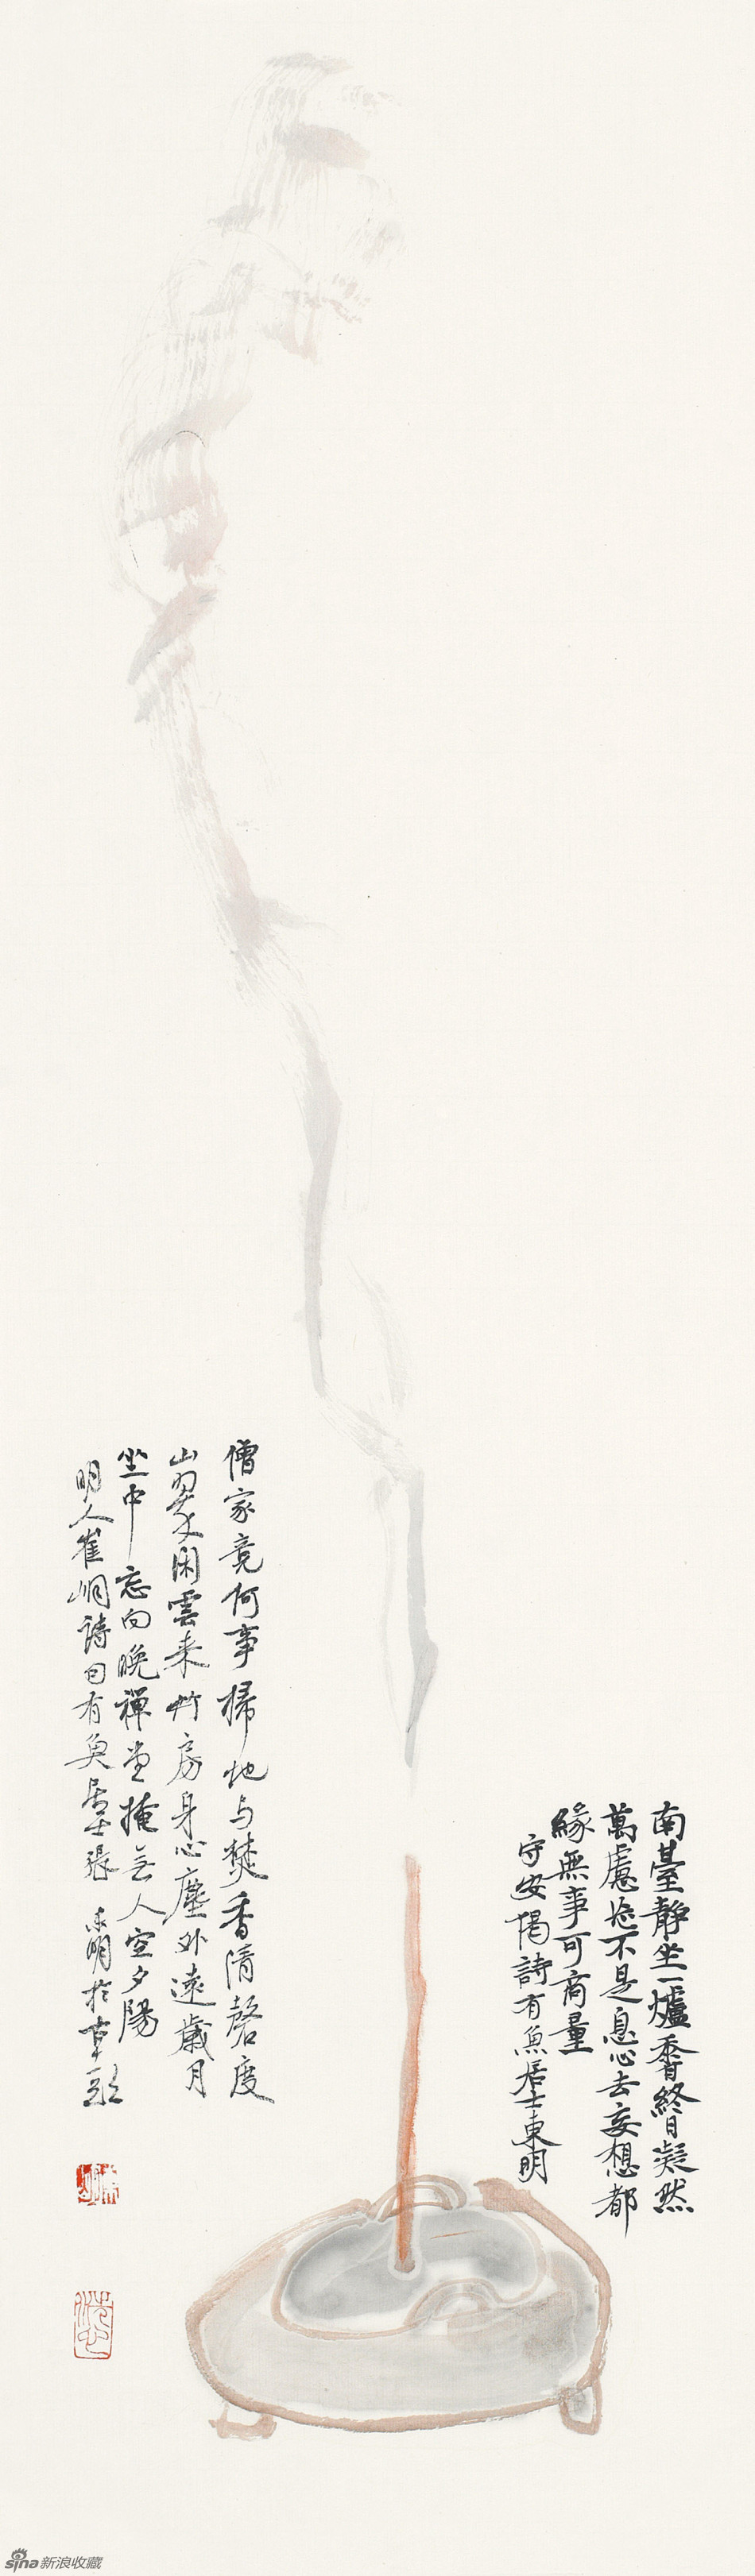 南臺静坐一爐香終日凝然
萬慮忘不是息心去妄想都
緣無事可商量
守安偈詩有魚居士東明
僧家竟何事掃地与焚香清磬度
山翠閑雲来竹房身心塵外遠歲月
坐中忘向晚禅堂掩無人空夕陽
明人崔峒詩句有魚居士張東明於
sina新浪收藏